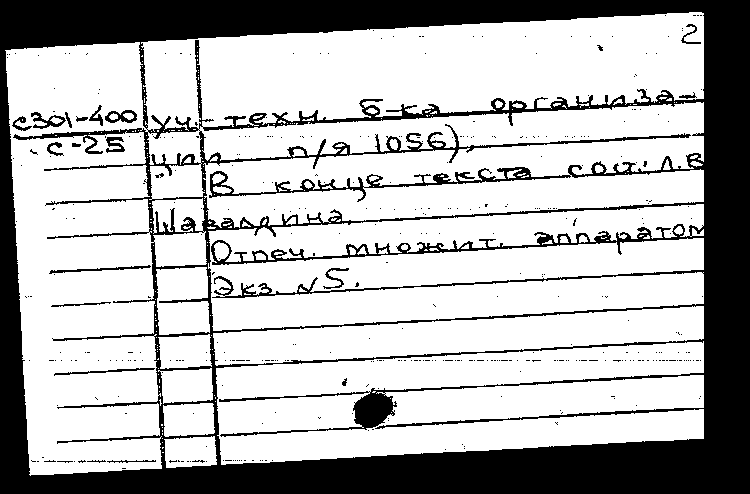 2
с301-400
с-25
уч.-техн. б-ка организа-
ции п/я 1056),
В конце текста сост.: Л.В
Шавалдина.
Отпеч. множит. аппаратом
Экз. №5.